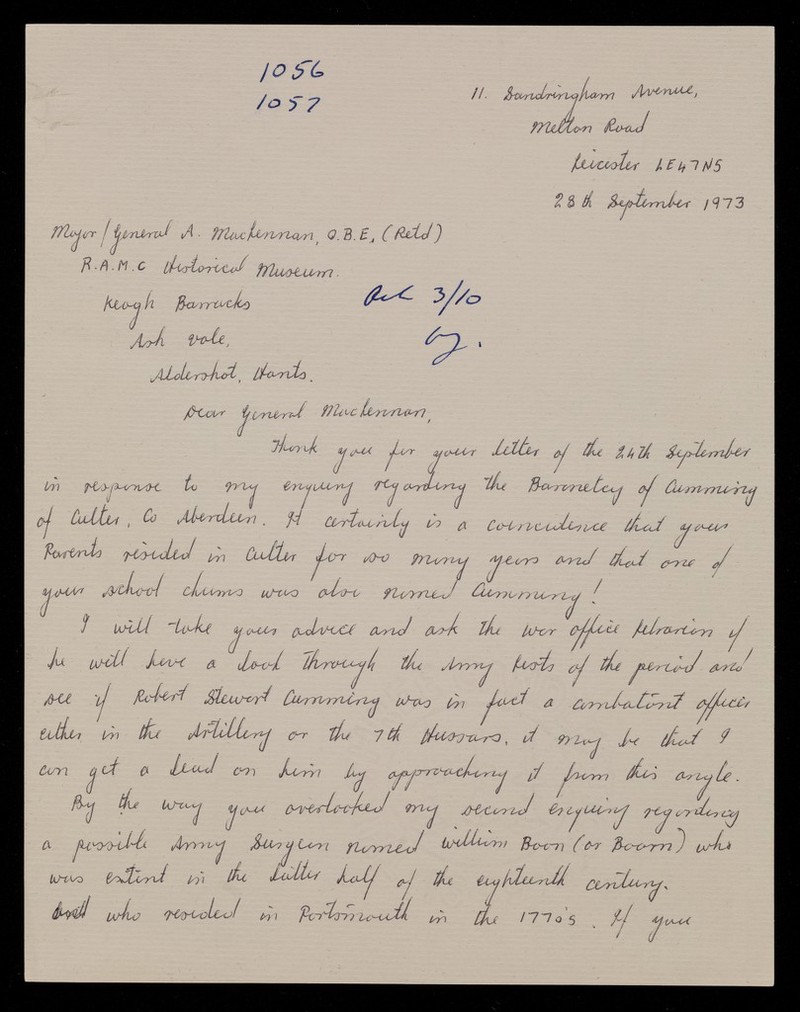 1056
1057
11. Sandringham Avenue,
Melton Road
Leicester LE4 7NS
28th September 1973
Major/General A. MacLennan, O.B.E, (Retd)
R.A.M.C Historical Museum.
Keogh Barracks
Ash Vale,
Aldershot, Hants.
3/10
Dear General MacLennan,
Thank you for your letter of the 24th September
in response to my enquiry regarding the Baronetcy of Cumming
of Culter, Co Aberdeen. It certainly is a coincidence that your
Parents resided in Culter for so many years and that one of
your school chums was also named Cumming!
I will take your advice and ask the War Office Librarian if
he will have a look through the Army Lists of the period and
see if Robert Stewart Cumming was in fact a combatant officer
either in the Artillery or the 7th Hussars, it may be that I
can get a lead on him by approaching it from this angle.
By the way you overlooked my second enquiry regarding
a possible Army Surgeon named William Boon (or Boorn) who
was extant in the latter half of the eighteenth century.
who resided in Portsmouth in the 1770's. If you